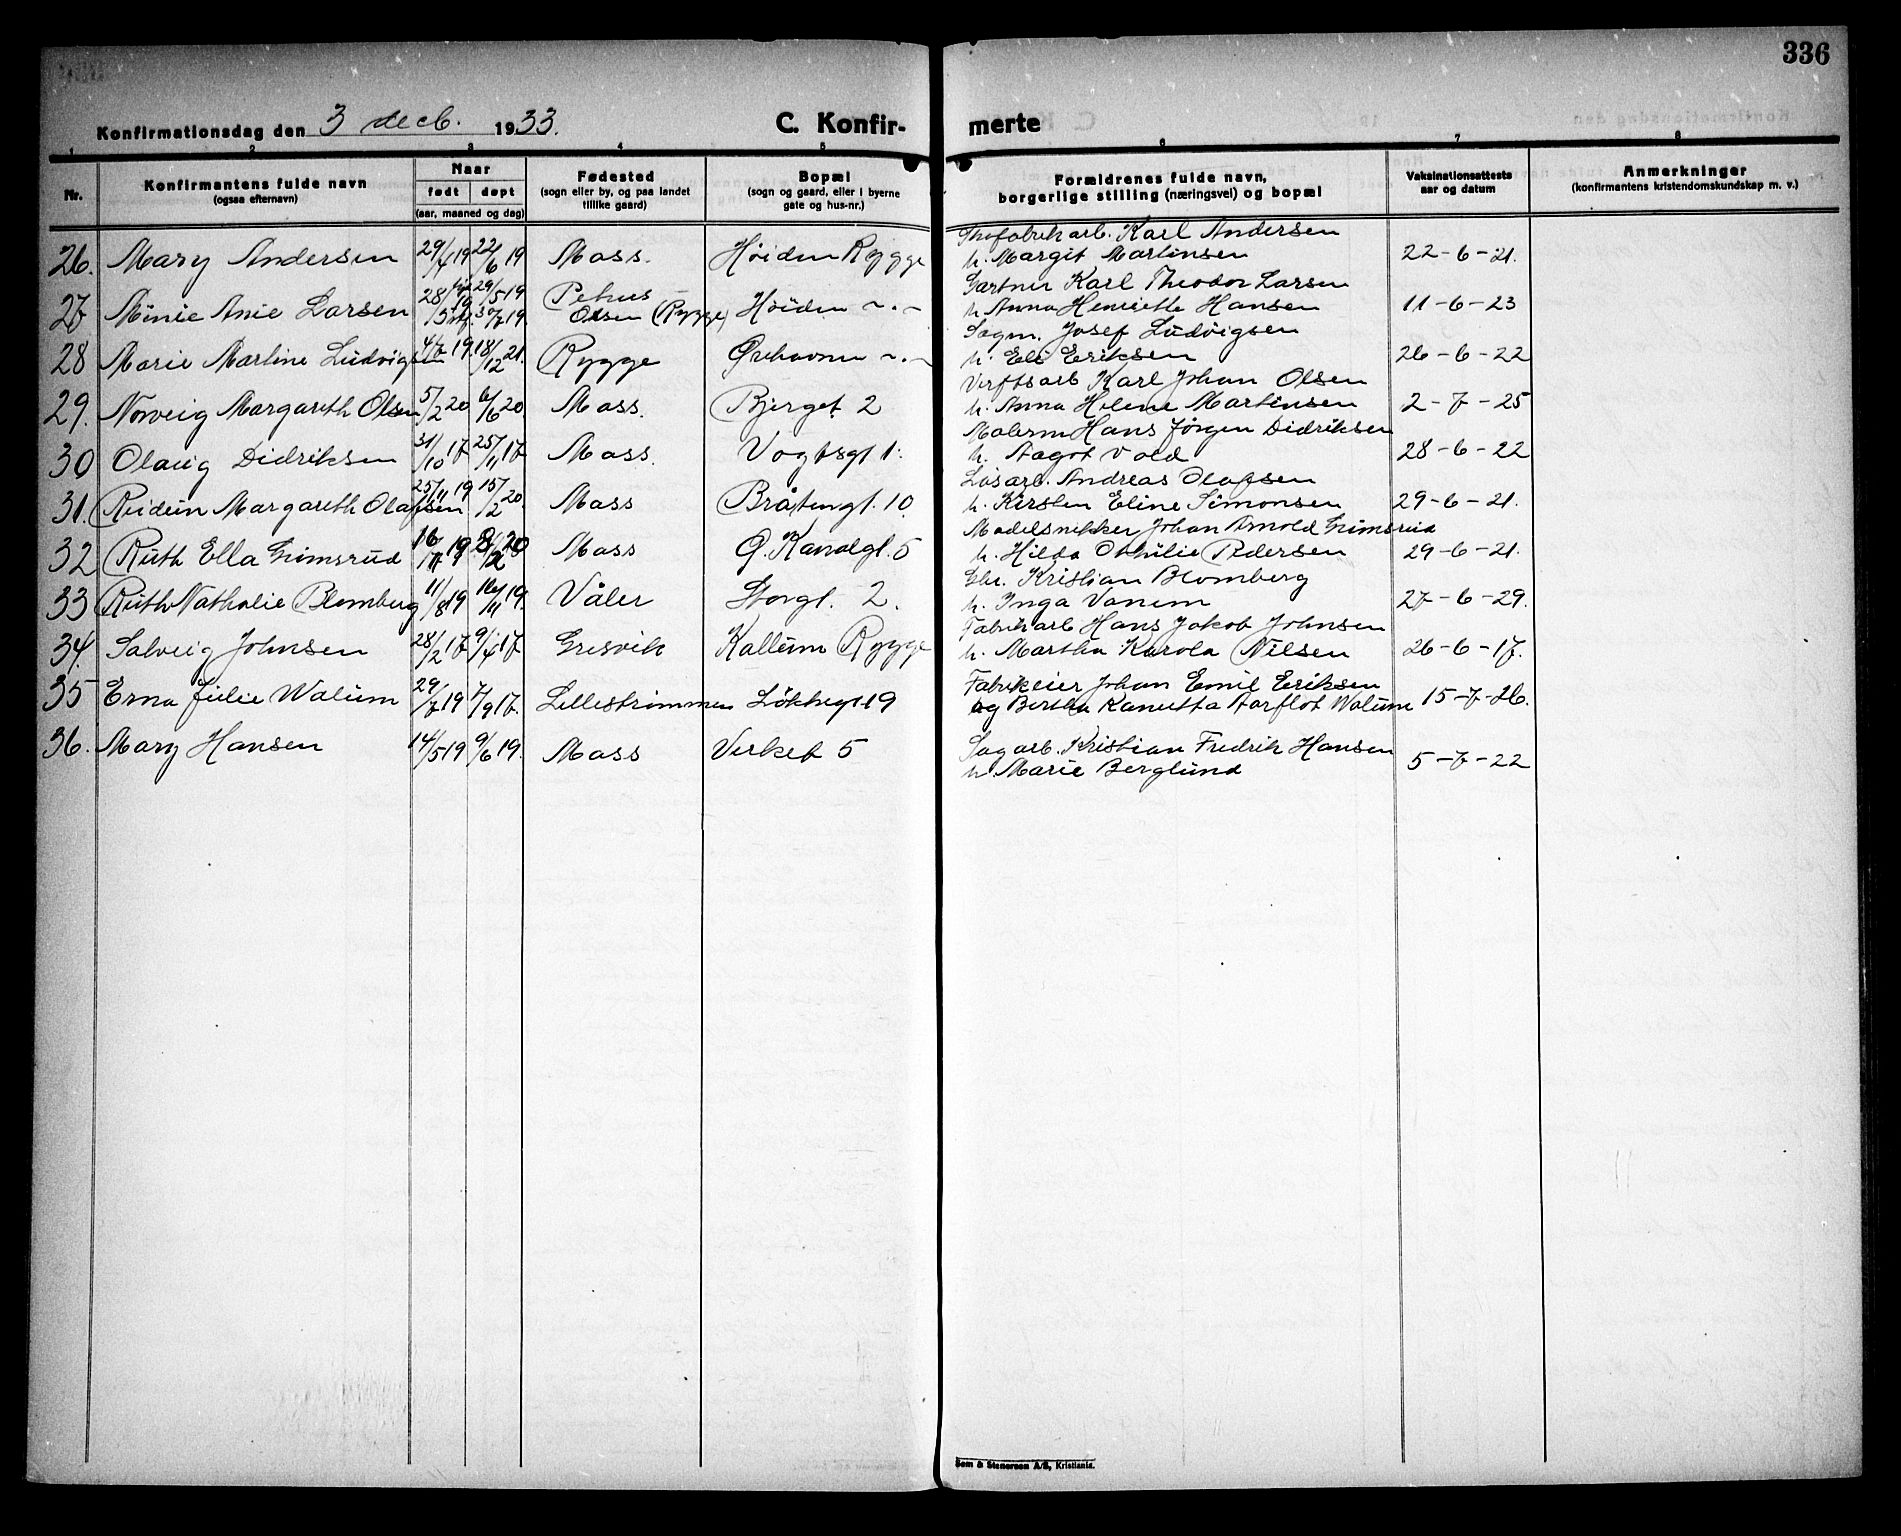 336
Konfirmationsdag den 3 decb. 1933.
C. Konfirmerte
1 2 3 4 5 6 7 8
Nr.
Konfirmantens fulde navn
(ogsaa efternavn)
Naar
født døpt
(aar, maaned og dag)
Fødested
(sogn eller by, og paa landet
tillike gaard)
Bopæl
(sogn og gaard, eller i byerne
gate og hus-nr.)
Forældrenes fulde navn,
borgerlige stilling (næringsvei) og bopæl
Vaksinationsattests
aar og datum
Anmerkninger
(konfirmantens kristendomskundskap m. v.)
Karl Andersen
26. Mary Andersen 29/4 19 22/6 19 Moss. Høiden Rygge h. Margit Martinsen 22-6-21.
Gartner Karl Theodor Larsen
27 Minie Anie Larsen 28/5 19 29/5 19 30/7 19. Olsen (Rygge) Høiden -"- h. Anna Henriette Hansen 11-6-23
Sagm. Josef Ludvigsen
28 Marie Martine Ludvigsen 4/7 19. 18/12 21. Rygge Ørehavna -"- h. Els Eriksen 26-6-22
Verftsarb Karl Johan Olsen
29. Norveig Margareth Olsen 5/2 20 6/6 20. Moss. Bjerget 2 h. Anna Helene Martinsen 2-7-25
Malerm Hans Jörgen Didriksen
30 Olaug Didriksen 31/10 17 25/11 17. Moss. Vogtsgt 1. h. Aagot Vold 28-6-22
Løsarb. Andreas Olafsen
31. Reidun Margareth Olafsen 25/11 19 15/2 20. Moss Bråtengt. 10. h. Kirsten Eline Simonsen 29-6-21.
Modelsnekker Johan Arnold Grimsrud
32 Ruth Ella Grimsrud 16/11 19 8/2 20 Moss G. Kanalgt. 5 h. Hilda Othilie Pedersen 29-6-21.
Kristian Blomberg
33 Ruth Nathalie Blomberg 11/8 19 16/11 19. Våler Storgt. 2. h. Inga Vanem 27-6-29.
Fabrikarb Hans Jakob Johnsen
34. Solveig Johnsen 28/2 17 9/4 17 Gresvik Kallum Rygge h. Martha Karola Nilsen 26-6-17.
Fabrikeier Johan Emil Eriksen
35 Erna Julie Walum 29/7 19 7/9 17. Lillestrømmen Løkkegt 19 og Bertha Kanutta Aarflot Walum 15-7-26.
Sagarb. Kristian Fredrik Hansen
36. Mary Hansen 14/5 19 9/6 19. Moss Verket 5 h. Marie Berglund 5-7-22
Sem & Stenersen A/S, Kristiania.